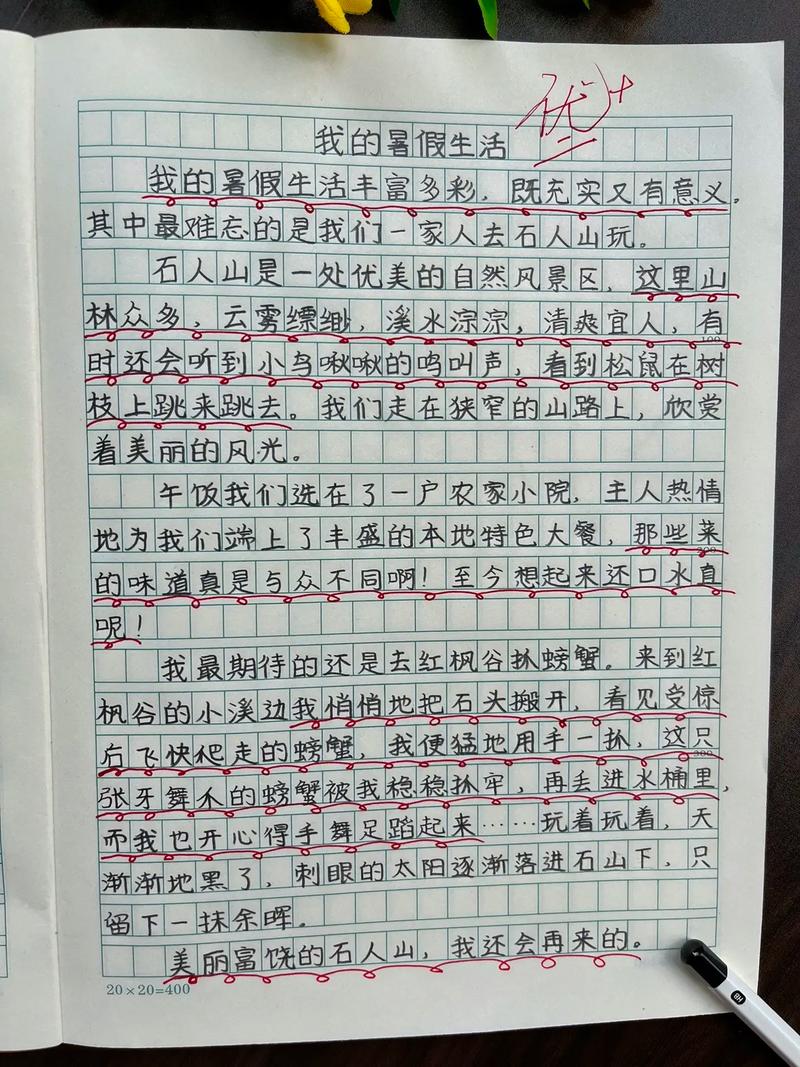 优+
我的暑假生活
我的暑假生活丰富多彩，既充实又有意义。
其中最难忘的是我们一家人去石人山玩。
石人山是一处优美的自然风景区，这里山
林众多，云雾缥缈，溪水淙淙，清爽宜人，有
100
时还会听到小鸟啾啾的鸣叫声，看到松鼠在树
枝上跳来跳去。我们走在狭窄的山路上，欣赏
着美丽的风光。
午饭我们选在了一户农家小院，主人热情
地为我们端上了丰盛的本地特色大餐，那些菜
200
的味道真是与众不同啊！至今想起来还口水直
呢！
我最期待的还是去红枫谷抓螃蟹。来到红
枫谷的小溪边我悄悄地把石头搬开，看见受惊
后飞快爬走的螃蟹，我便猛地用手一抓，这只
300
张牙舞爪的螃蟹被我稳稳抓牢，再丢进水桶里，
而我也开心得手舞足蹈起来……玩着玩着，天
渐渐地黑了，刺眼的太阳逐渐落进石山下，只
留下一抹余晖。
美丽富饶的石人山，我还会再来的。
20×20=400
HB